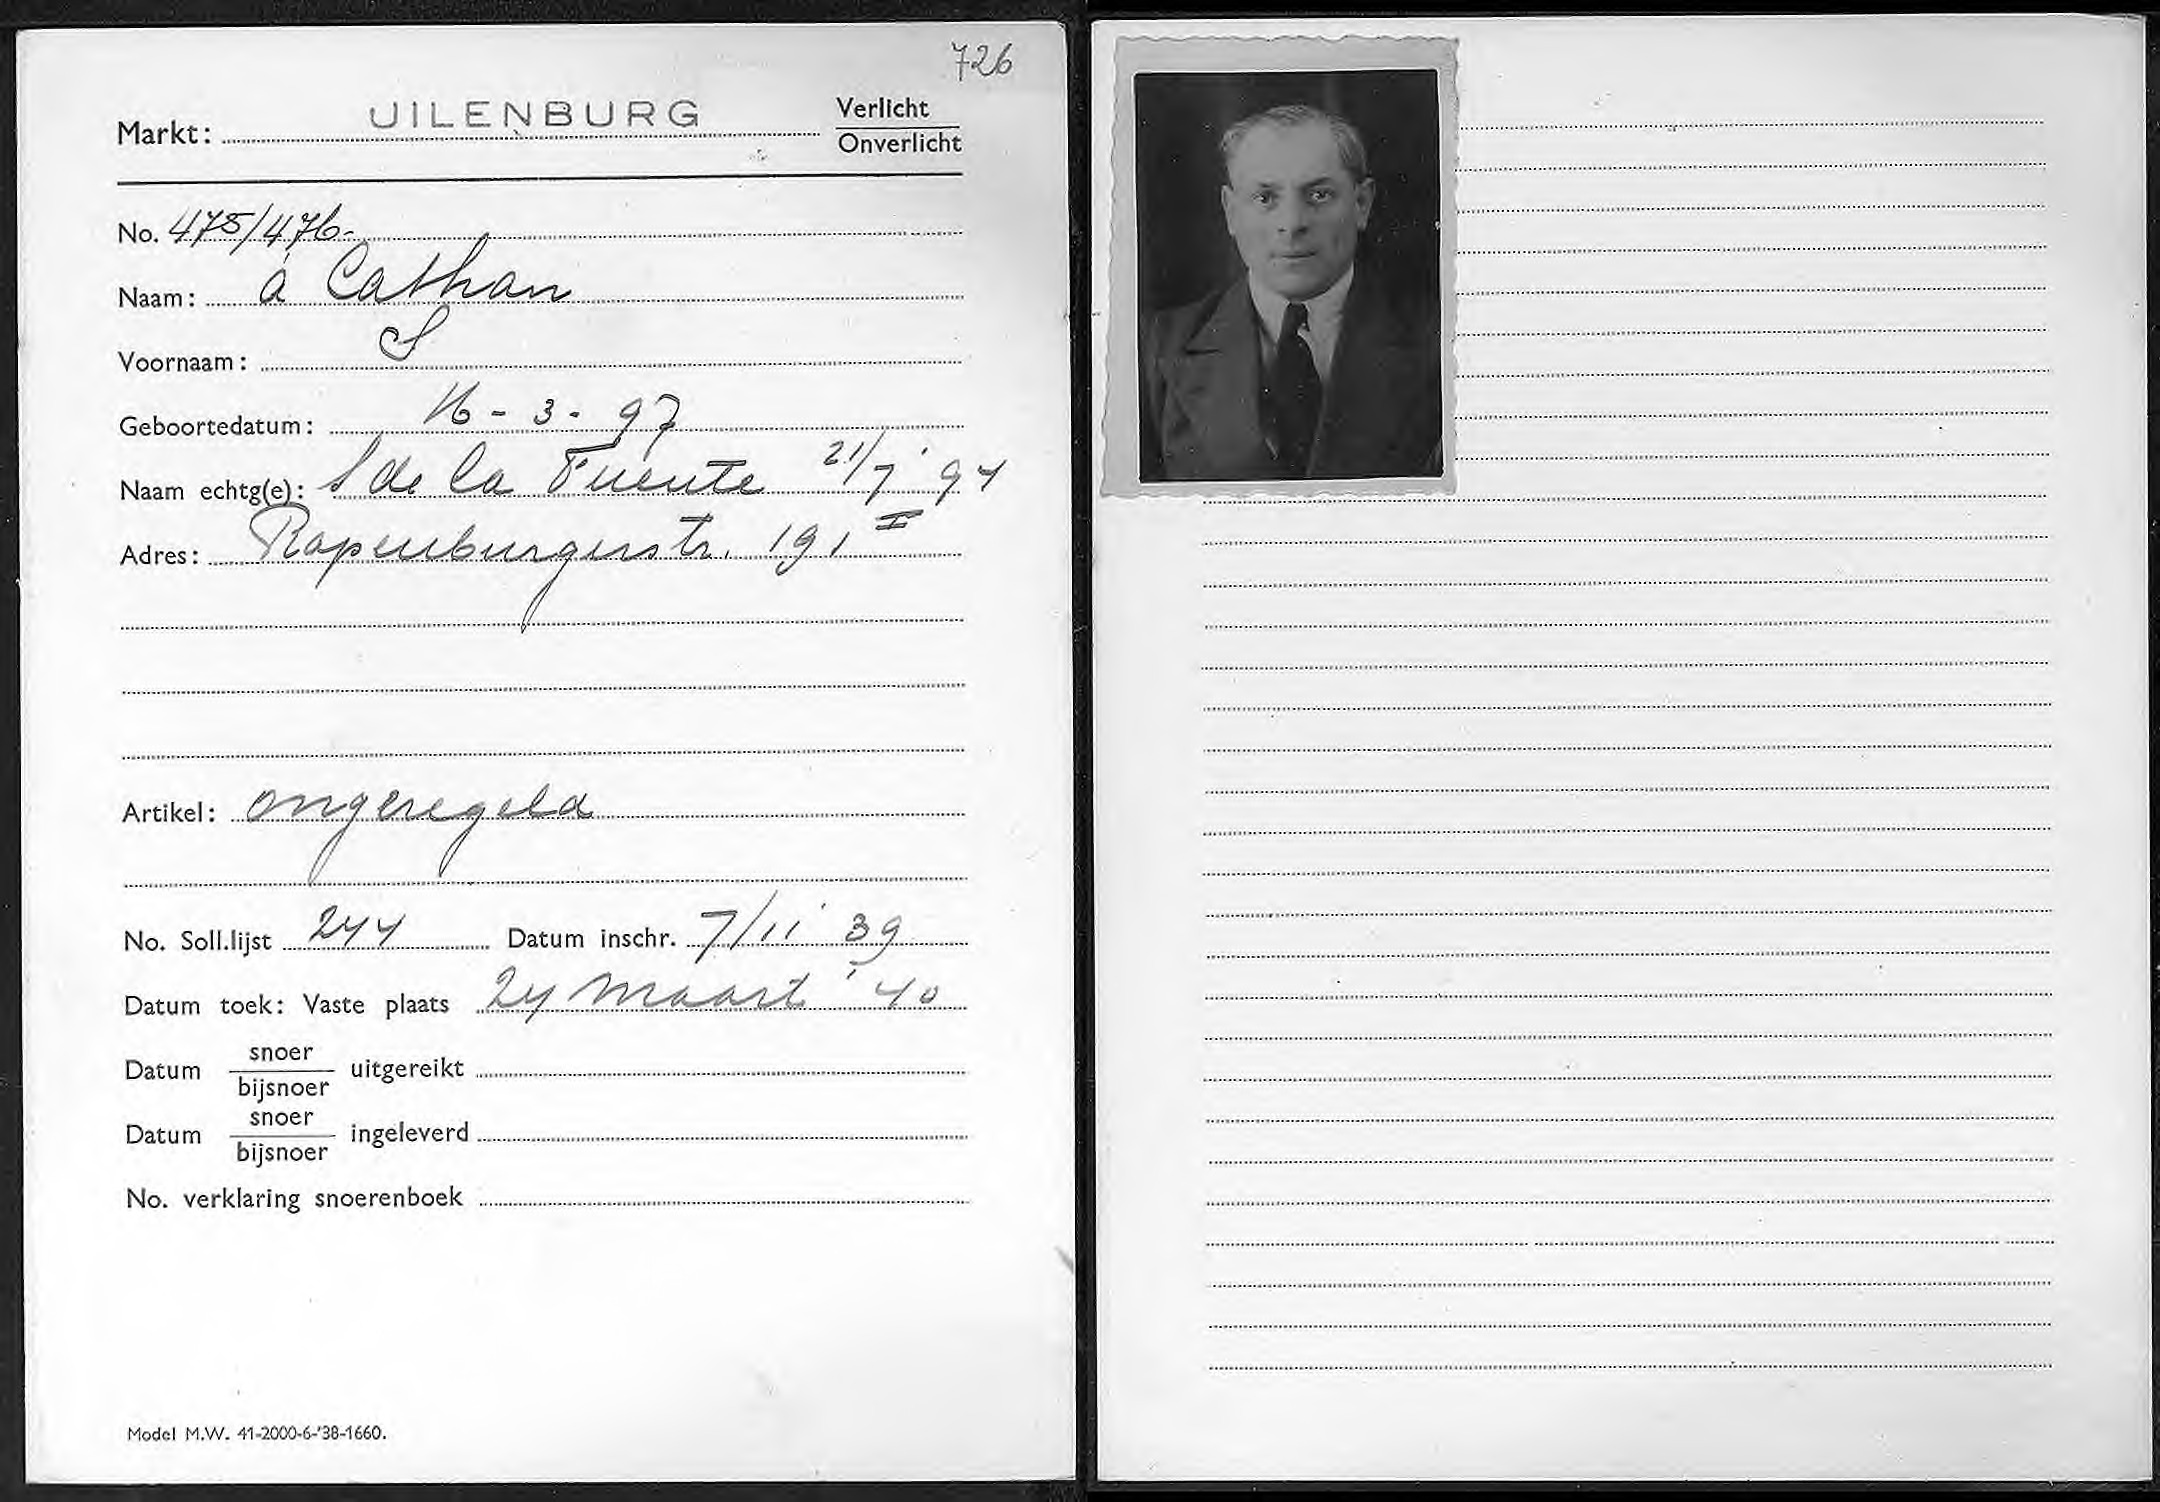 726
Markt: UILENBURG Verlicht
Onverlicht
No. 475/476-
Naam: á Cathan
Voornaam: S
Geboortedatum: 16-3-97
Naam echtg(e): S de la Fuente 21/7 '94
Adres: Rapenburgerstr. 191 I
Artikel: ongeregeld
No. Soll.lijst 244 Datum inschr. 7/11 '39
Datum toek: Vaste plaats 24 Maart '40
Datum snoer/bijsnoer uitgereikt
Datum snoer/bijsnoer ingeleverd
No. verklaring snoerenboek
Model M.W. 41-2000-6-'38-1660.